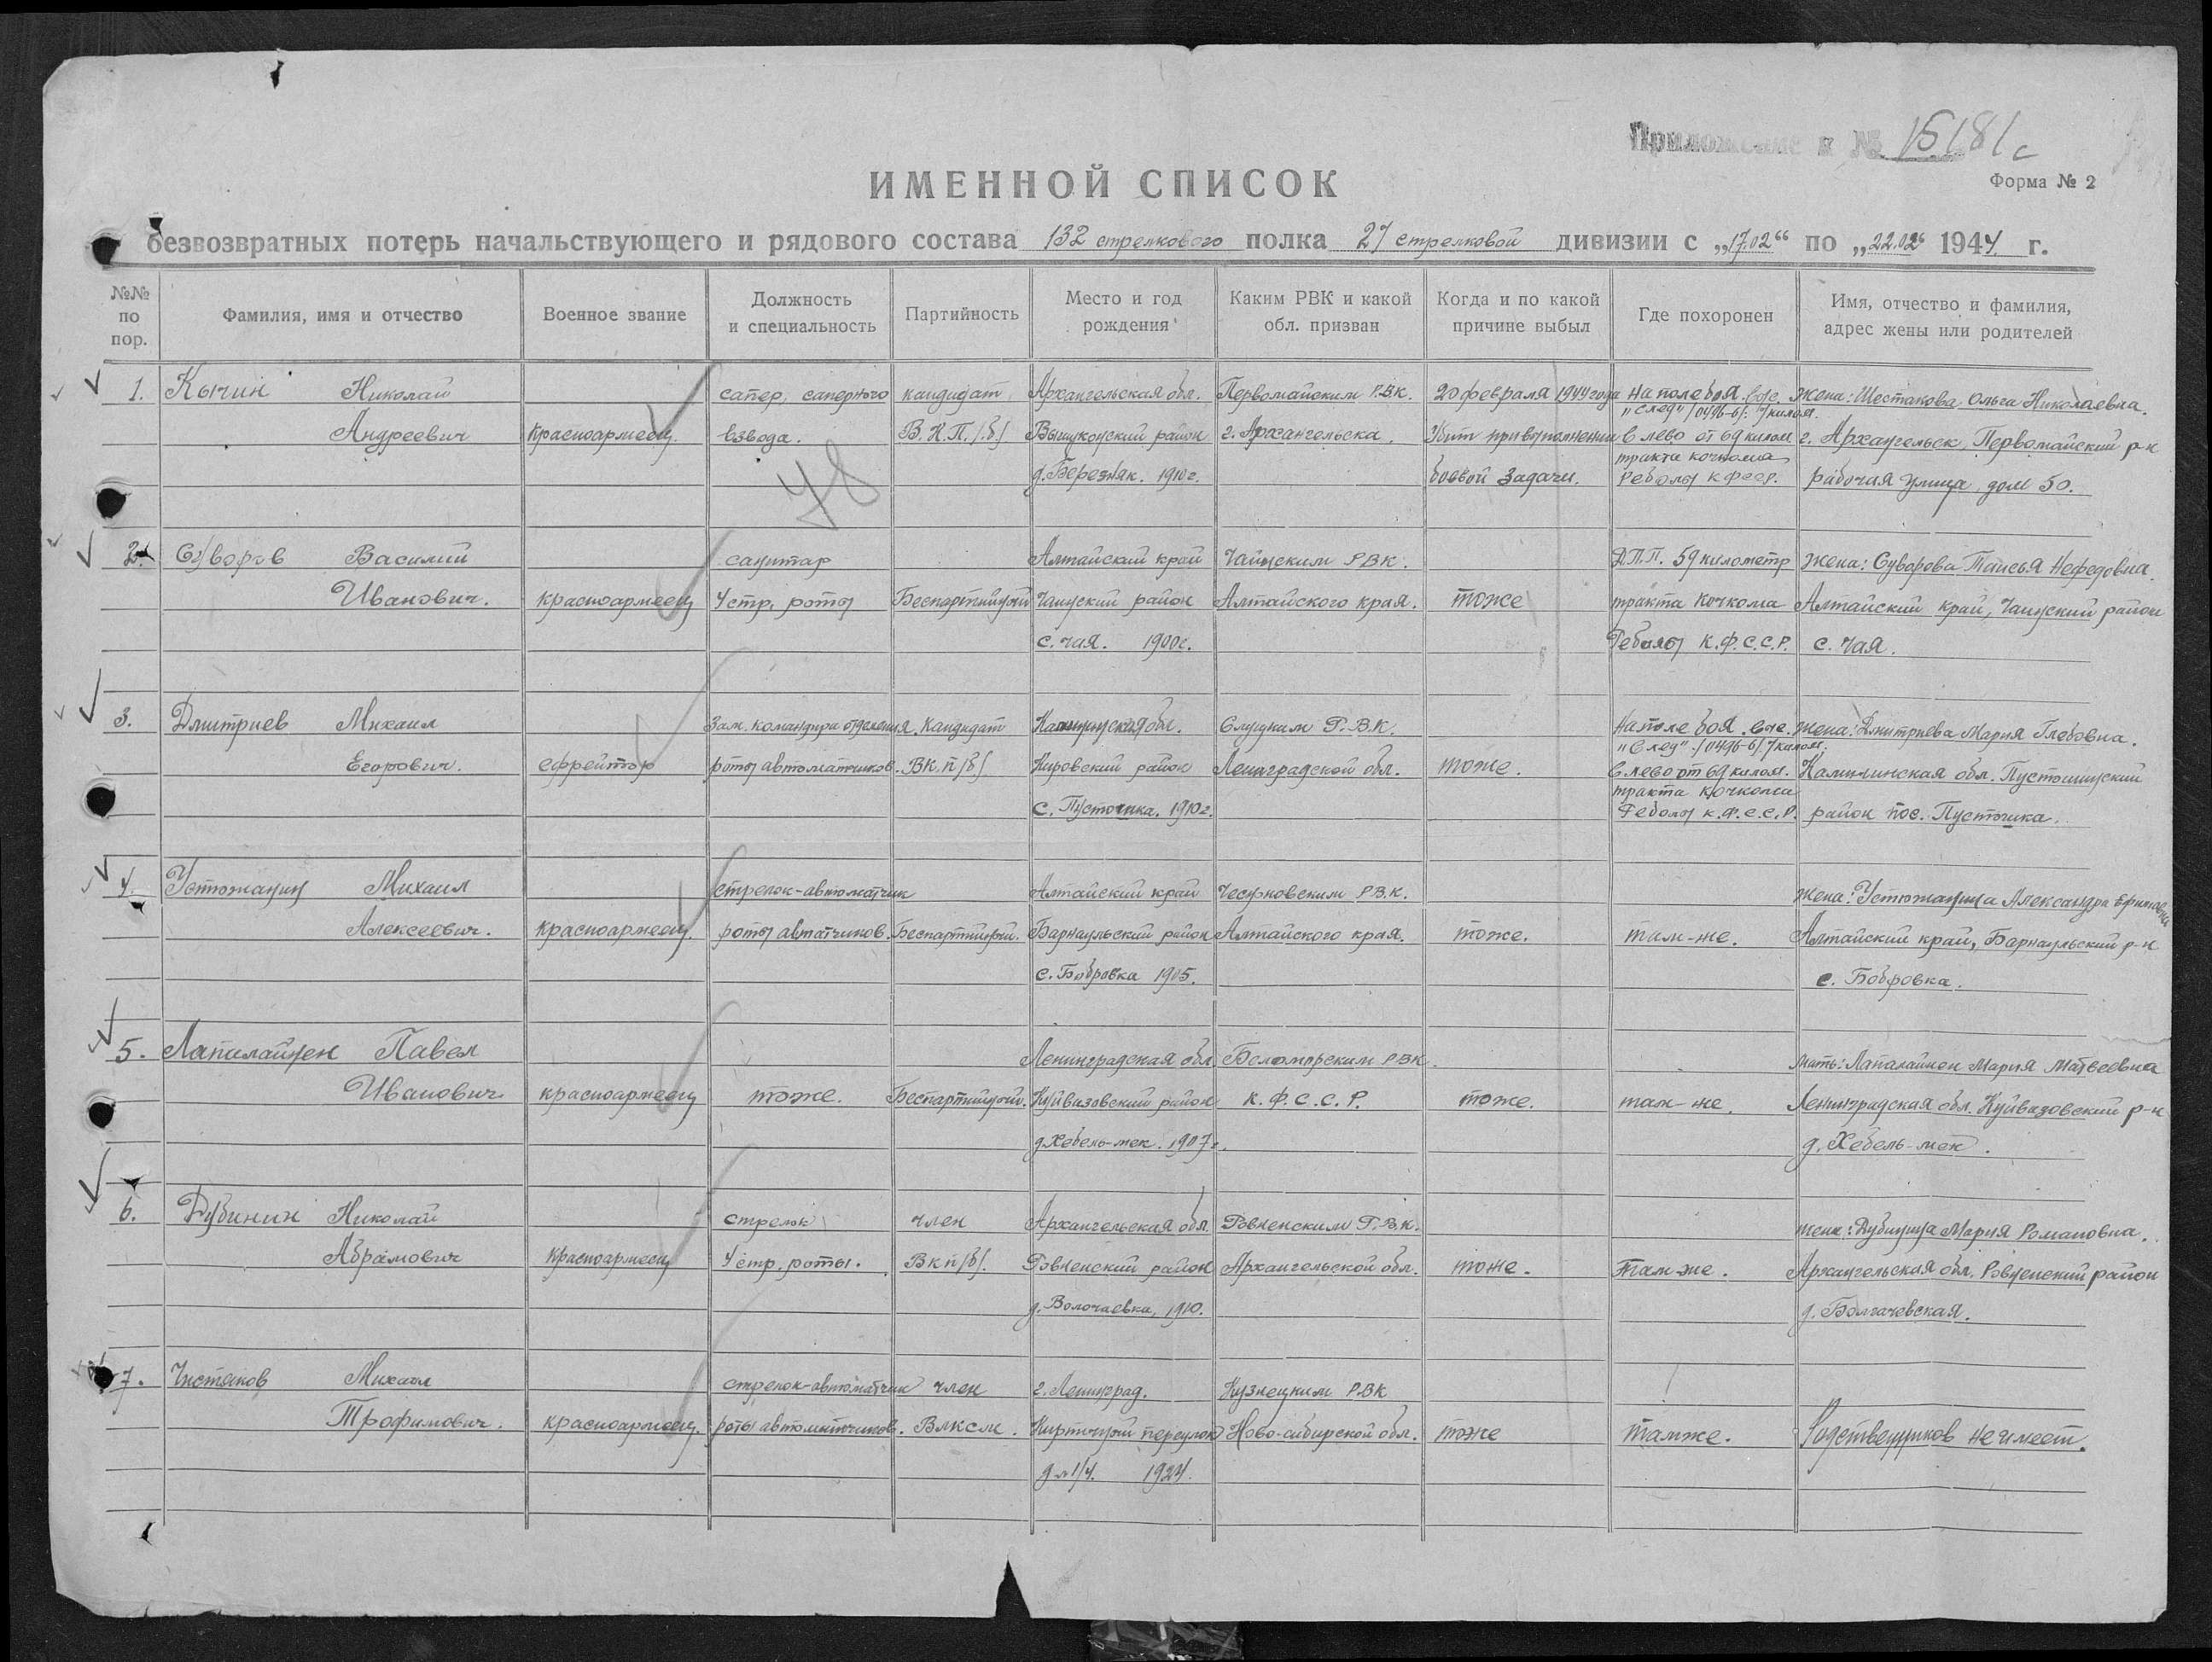 Приложение к № 15181с
ИМЕННОЙ СПИСОК
Форма № 2
безвозвратных потерь начальствующего и рядового состава 132 стрелкового полка 27 стрелковой дивизии с „17.02“ по „22.02“ 1944 г.
№№ по пор. Фамилия, имя и отчество Военное звание Должность и специальность Партийность Место и год рождения Каким РВК и какой обл. призван Когда и по какой причине выбыл Где похоронен Имя, отчество и фамилия, адрес жены или родителей
1. Кычин Николай сапер, саперного кандидат Архангельская обл. Первомайским Р.В.К. 20 февраля 1944 года На поле боя. вое. Жена: Шестакова Ольга Николаевна.
„След“ /0496-б/. 7 килом.
Андреевич красноармеец. взвода. В.К.П./б/ район г. Архангельска. Убит при выполнении влево от 69 килом г. Архангельск, Первомайский р-н
тракта кочкома
д. Березняк. 1910 г. боевой задачи. Реболы к фсср. рабочая улица, дом 50.
48
2. Суворов Василий санитар Алтайский край Чаинским РВК. Д.П.П. 59 километр жена: Суворова Таисья Нефедовна.
Иванович. красноармеец 4 стр. роты Беспартийный Чаинский район Алтайского края. тоже тракта Кочкома Алтайский край, Чаинский район
с. Чая. 1900 г. Реболы К.Ф.С.С.Р. с. Чая.
3. Дмитриев Михаил Зам. командира отделения. кандидат Калининская обл. Слуцким Р.В.К. На поле боя. вое. жена: Дмитриева Мария Глебовна.
„След“ /0496-б/. 7 килом.
Егорович. ефрейтор роты автоматчиков. ВКП/б/ Кировский район Ленинградской обл. тоже. влево от 69 килом. Калининская обл. Пустошинский
тракта кочкома
с. Пустошка. 1910 г. Реболы К.Ф.С.С.Р. район пос. Пустошка.
4. Устюжанин Михаил стрелок-автоматчик Алтайский край Чесноковским РВК. жена: Устюжанина Александра
Алексеевич. красноармеец. роты автатчиков. Беспартийный. Барнаульский район Алтайского края. тоже. там-же. Алтайский край, Барнаульский р-н
с. Бобровка 1905. с. Бобровка.
5. Лапалайнен Павел Ленинградская обл. Беломорским РВК. мать: Лапалайнен Мария Матвеевна
Иванович красноармеец тоже. Беспартийный. Куйвазовский район К.Ф.С.С.Р. тоже. там-же. Ленинградская обл. Куйвазовский р-н
д. Хебель-мек. 1907 г. д. Хебель-мек.
6. Дубинин Николай стрелок член Архангельская обл. Ровненским Р.В.К. жена: Дубинина Мария Романовна.
Абрамович красноармеец 4 стр. роты. ВКП/б/. Ровненский район Архангельской обл. тоже. Там же. Архангельская обл. Ровненский район
д. Волочаевка, 1910. д. Болгачевская.
7. Чистяков Михаил стрелок-автоматчик член г. Ленинград. Кузнецким РВК
Трофимович. красноармеец. роты автоматчиков. ВЛКСМ. Кирпичный переулок Ново-сибирской обл. тоже Тамже. Родственников не имеет.
д №1/4. 1924.